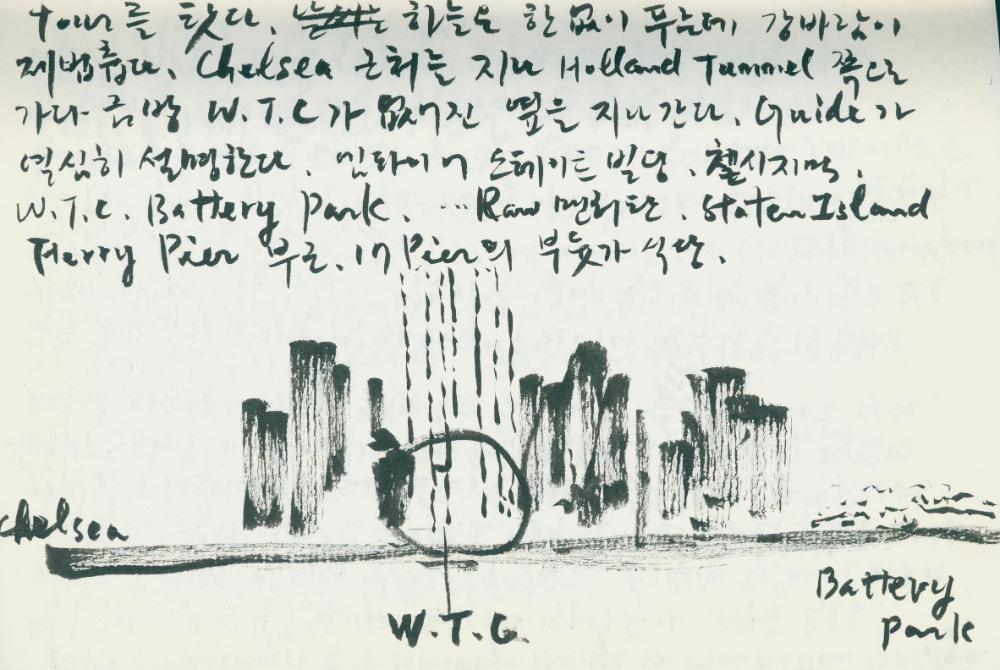 Tour를 탔다. 하늘은 한없이 푸른데 강바람이
제법 춥다. Chelsea 근처를 지나 Holland Tummel 쪽으로
가다 금방 W.T.C가 없어진 옆을 지나간다. Guide가
열심히 설명한다. 엠파이어 스테이트 빌딩, 첼시지역,
W.T.C. Battery Park. ... Raw 맨허탄. Staten Island
Ferry Pier 부근. 17 Pier의 부둣가 식당.
Chelsea
W.T.C.
Battery
Park